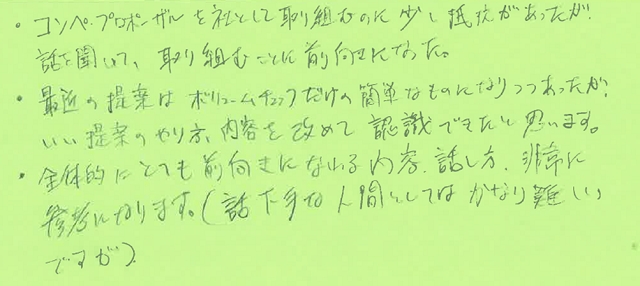 ・コンペ・プロポーザルを社として取り組むのに少し抵抗があったが、
話を聞いて、取り組むことに前向きになった。
・最近の提案はボリュームチェックだけの簡単なものになりつつあったが、
いい提案のやり方、内容を改めて認識できたと思います。
・全体的にとても前向きになれる内容、話し方、非常に
参考になります。(話下手な人間としてはかなり難しい
ですが)